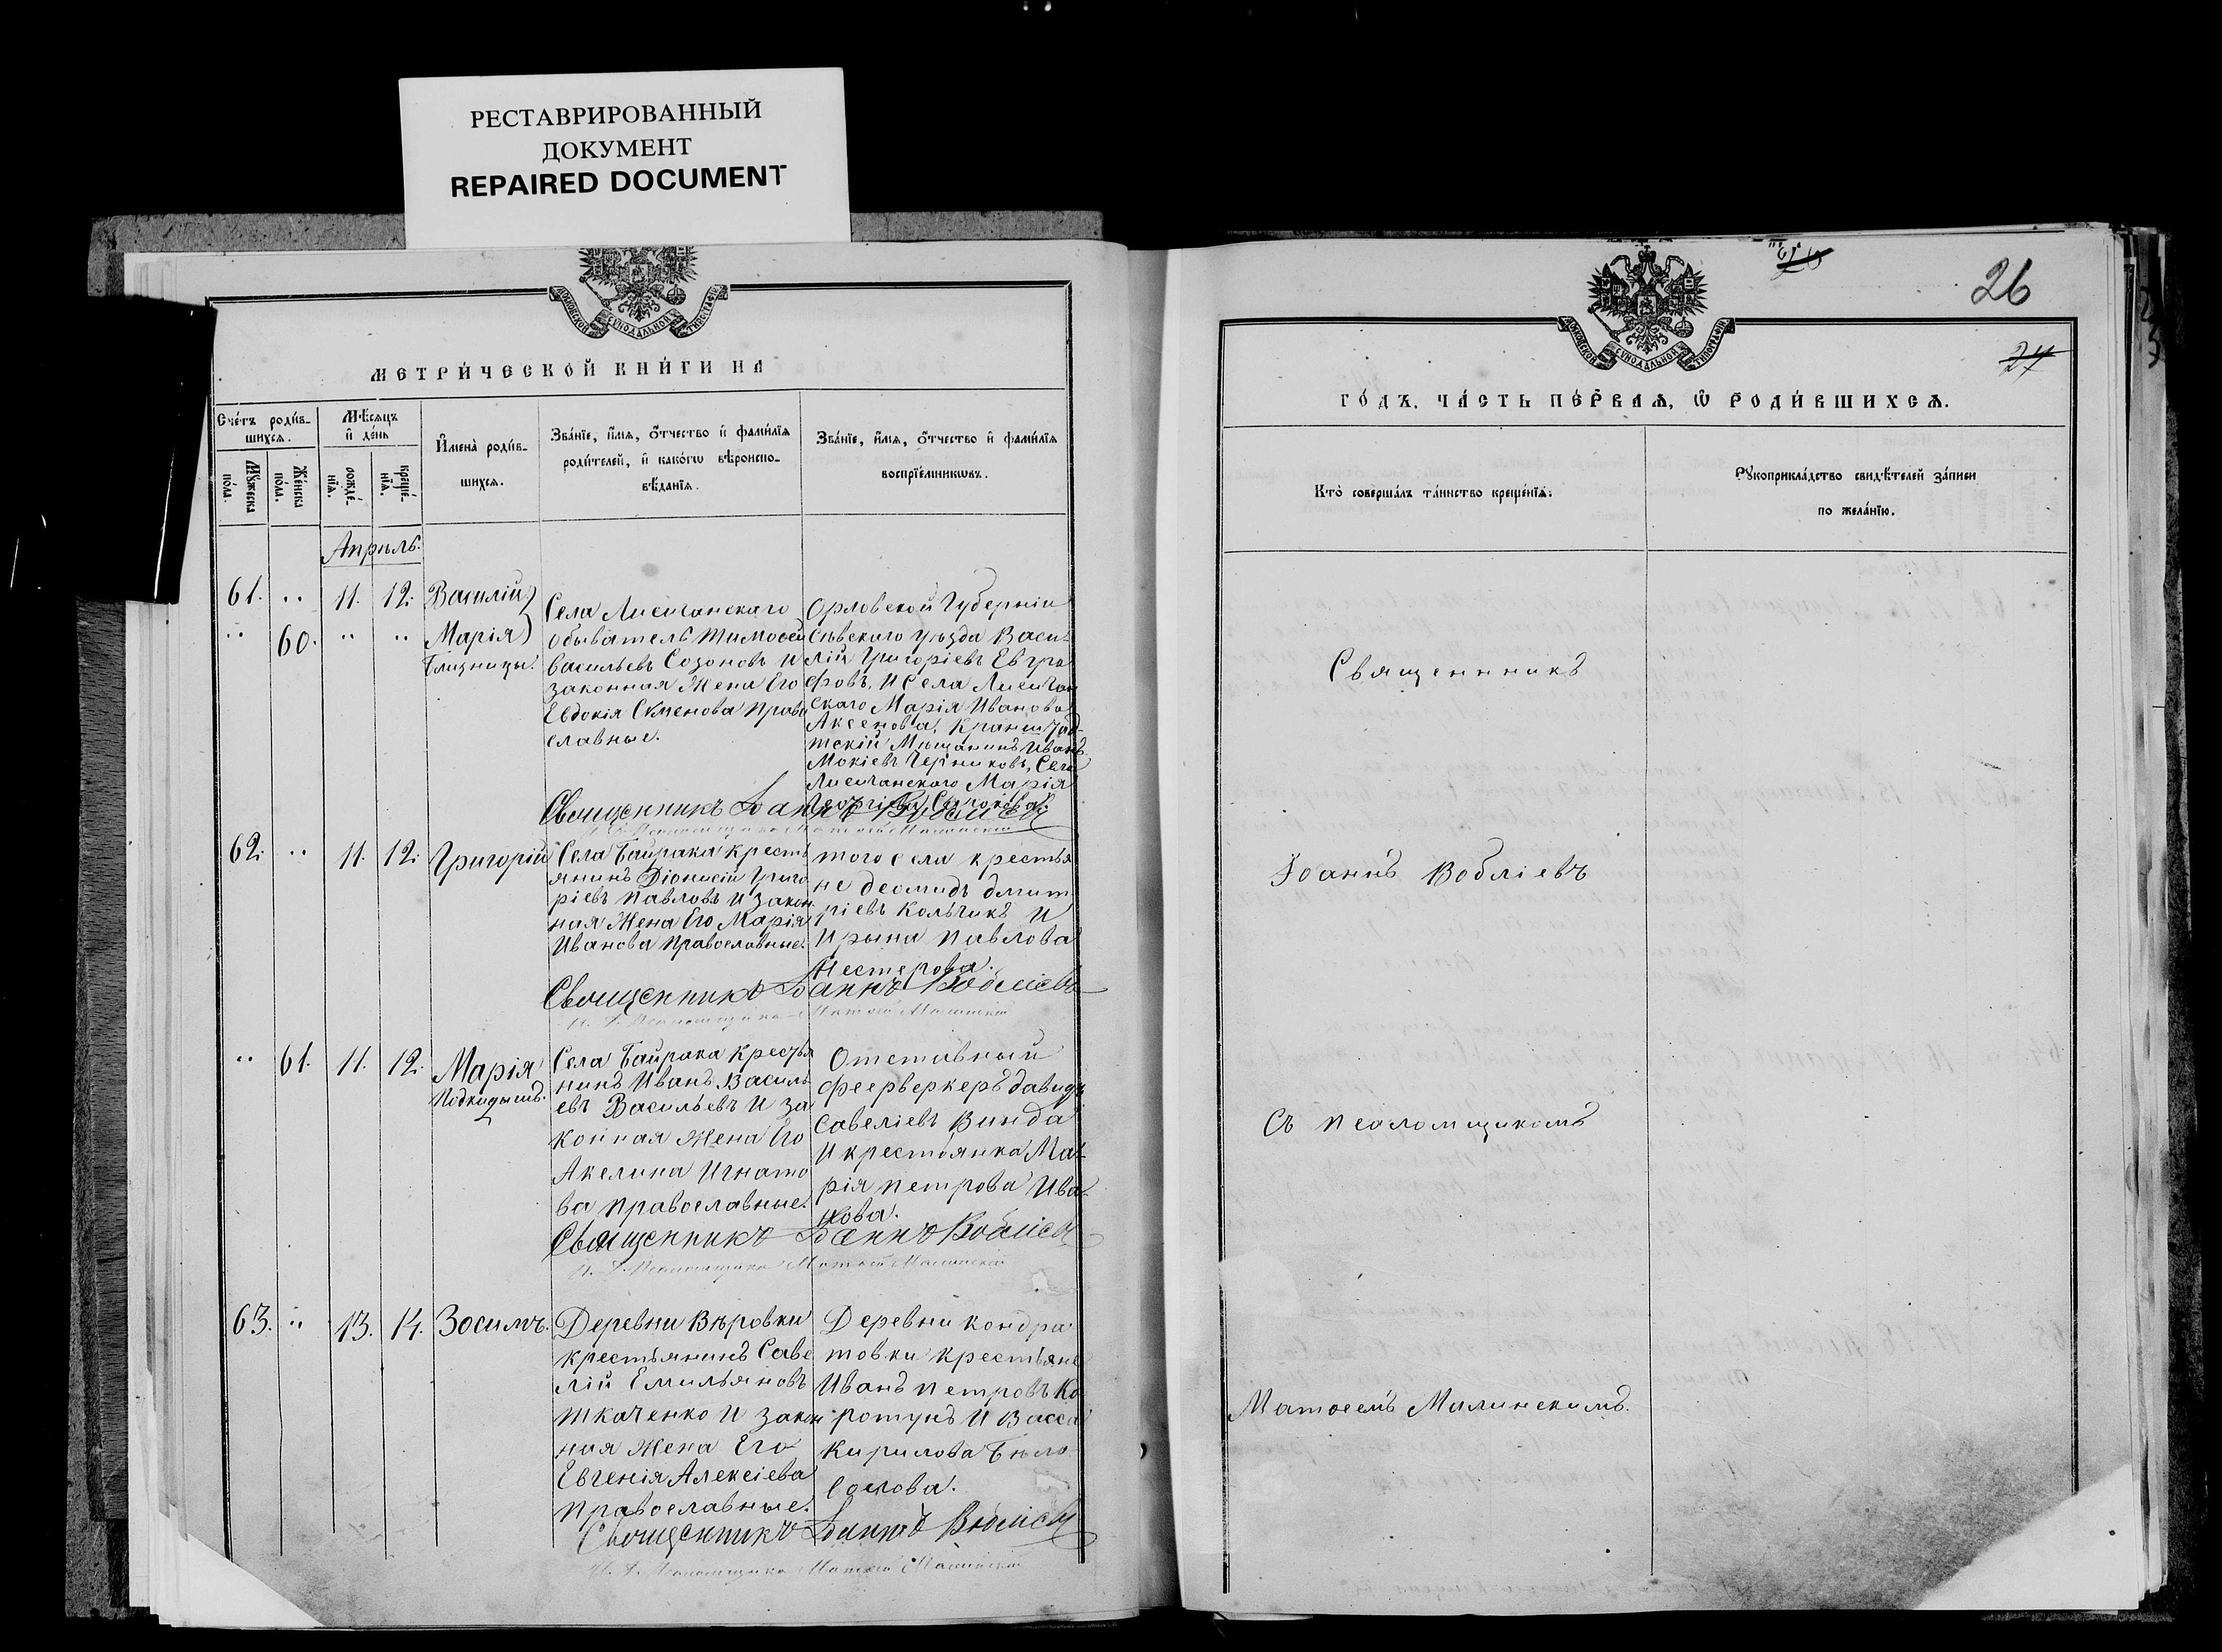 РЕСТАВРИРОВАННЫЙ
ДОКУМЕНТ
REPAIRED DOCUMENT
МОСКОВСКОЙ СѴНОДАЛЬНОЙ ТИПОГРАФІИ
МЕТРИ́ЧЕСКОЙ КНИ́ГИ НА
Сче́тъ роди́в-
шихсѧ.
Мꙋ́жеска
по́ла.
Же́нска
по́ла.
Мѣ́сѧцъ
и҆ де́нь
рожде́-
нїѧ.
креще́-
нїѧ.
И҆мена̀ роди́в-
шихсѧ.
Зва́нїе, и҆́мѧ, ѻ҆́тчество и҆ фами́лїѧ
роди́телей, и҆ како́гѡ вѣроиспо-
вѣ́данїѧ.
Зва́нїе, и҆́мѧ, ѻ҆́тчество и҆ фами́лїѧ
воспрїе́мникѡвъ.
Апрѣль.
61. " 11. 12. Василій
" 60. " " Марія
Близницы.
Села Лисичанскаго
обыватель Тимоѳей
Васильевъ Созоновъ и
законная Жена Его
Евдокія Семенова Прав
славные.
Орловской Губерніи
Сѣвскаго уѣзда Васи-
лій Григоріевъ Евгра
фовъ, и Села Лисичан
скаго Марія Иванова
Аксенова, Кранштад-
тскій Мѣщанинъ Иванъ
Мокіевъ Черниковъ, Села
Лисичанскаго Марія
Священникъ Іоаннъ Вобліевъ
62. " 11. 12. Григорій
Села Байрака Кресть
янинъ Діонисій Григо
ріевъ Павловъ и закон
ная Жена Его Марія
Иванова Православные.
того села крестья
не Деомидъ Дмит
ріевъ Кольчикъ и
Ирына Павлова
Нестерова.
Священникъ Іоаннъ Вобліевъ
" 61. 11. 12. Марія
Подкидышъ.
Села Байрака Крестья
нинъ Иванъ Василь
евъ Васильевъ и за
конная Жена Его
Акелина Игнато
ва Православные.
Отставный
феерверкеръ Давидъ
Савеліевъ Винда
и крестьянка Ма-
рія Петрова Ива-
нова.
Священникъ Іоаннъ Вобліевъ
63. " 13. 14. Зосимъ.
Деревни Вѣровки
крестьянинъ Саве
лій Емильяновъ
Ткаченко и закон
ная Жена Его
Евгенія Алексіева
Православные.
Деревни Кондра
товки крестьяне
Иванъ Петровъ Ко
ротунъ и Васса
Кирилова Бѣло
Священникъ Іоаннъ Вобліевъ
26
27
МОСКОВСКОЙ СѴНОДАЛЬНОЙ ТИПОГРАФІИ
ГО́ДЪ, ЧА́СТЬ ПЕ́РВАѦ, Ѡ҆ РОДИ́ВШИХСѦ.
Кто̀ соверша́лъ та́инство креще́нїѧ.
Рꙋкоприкла́дство свидѣ́телей за́писи
по жела́нїю.
Священникъ
Іоаннъ Вобліевъ
съ псаломщикомъ
Матѳеемъ Малинскимъ.